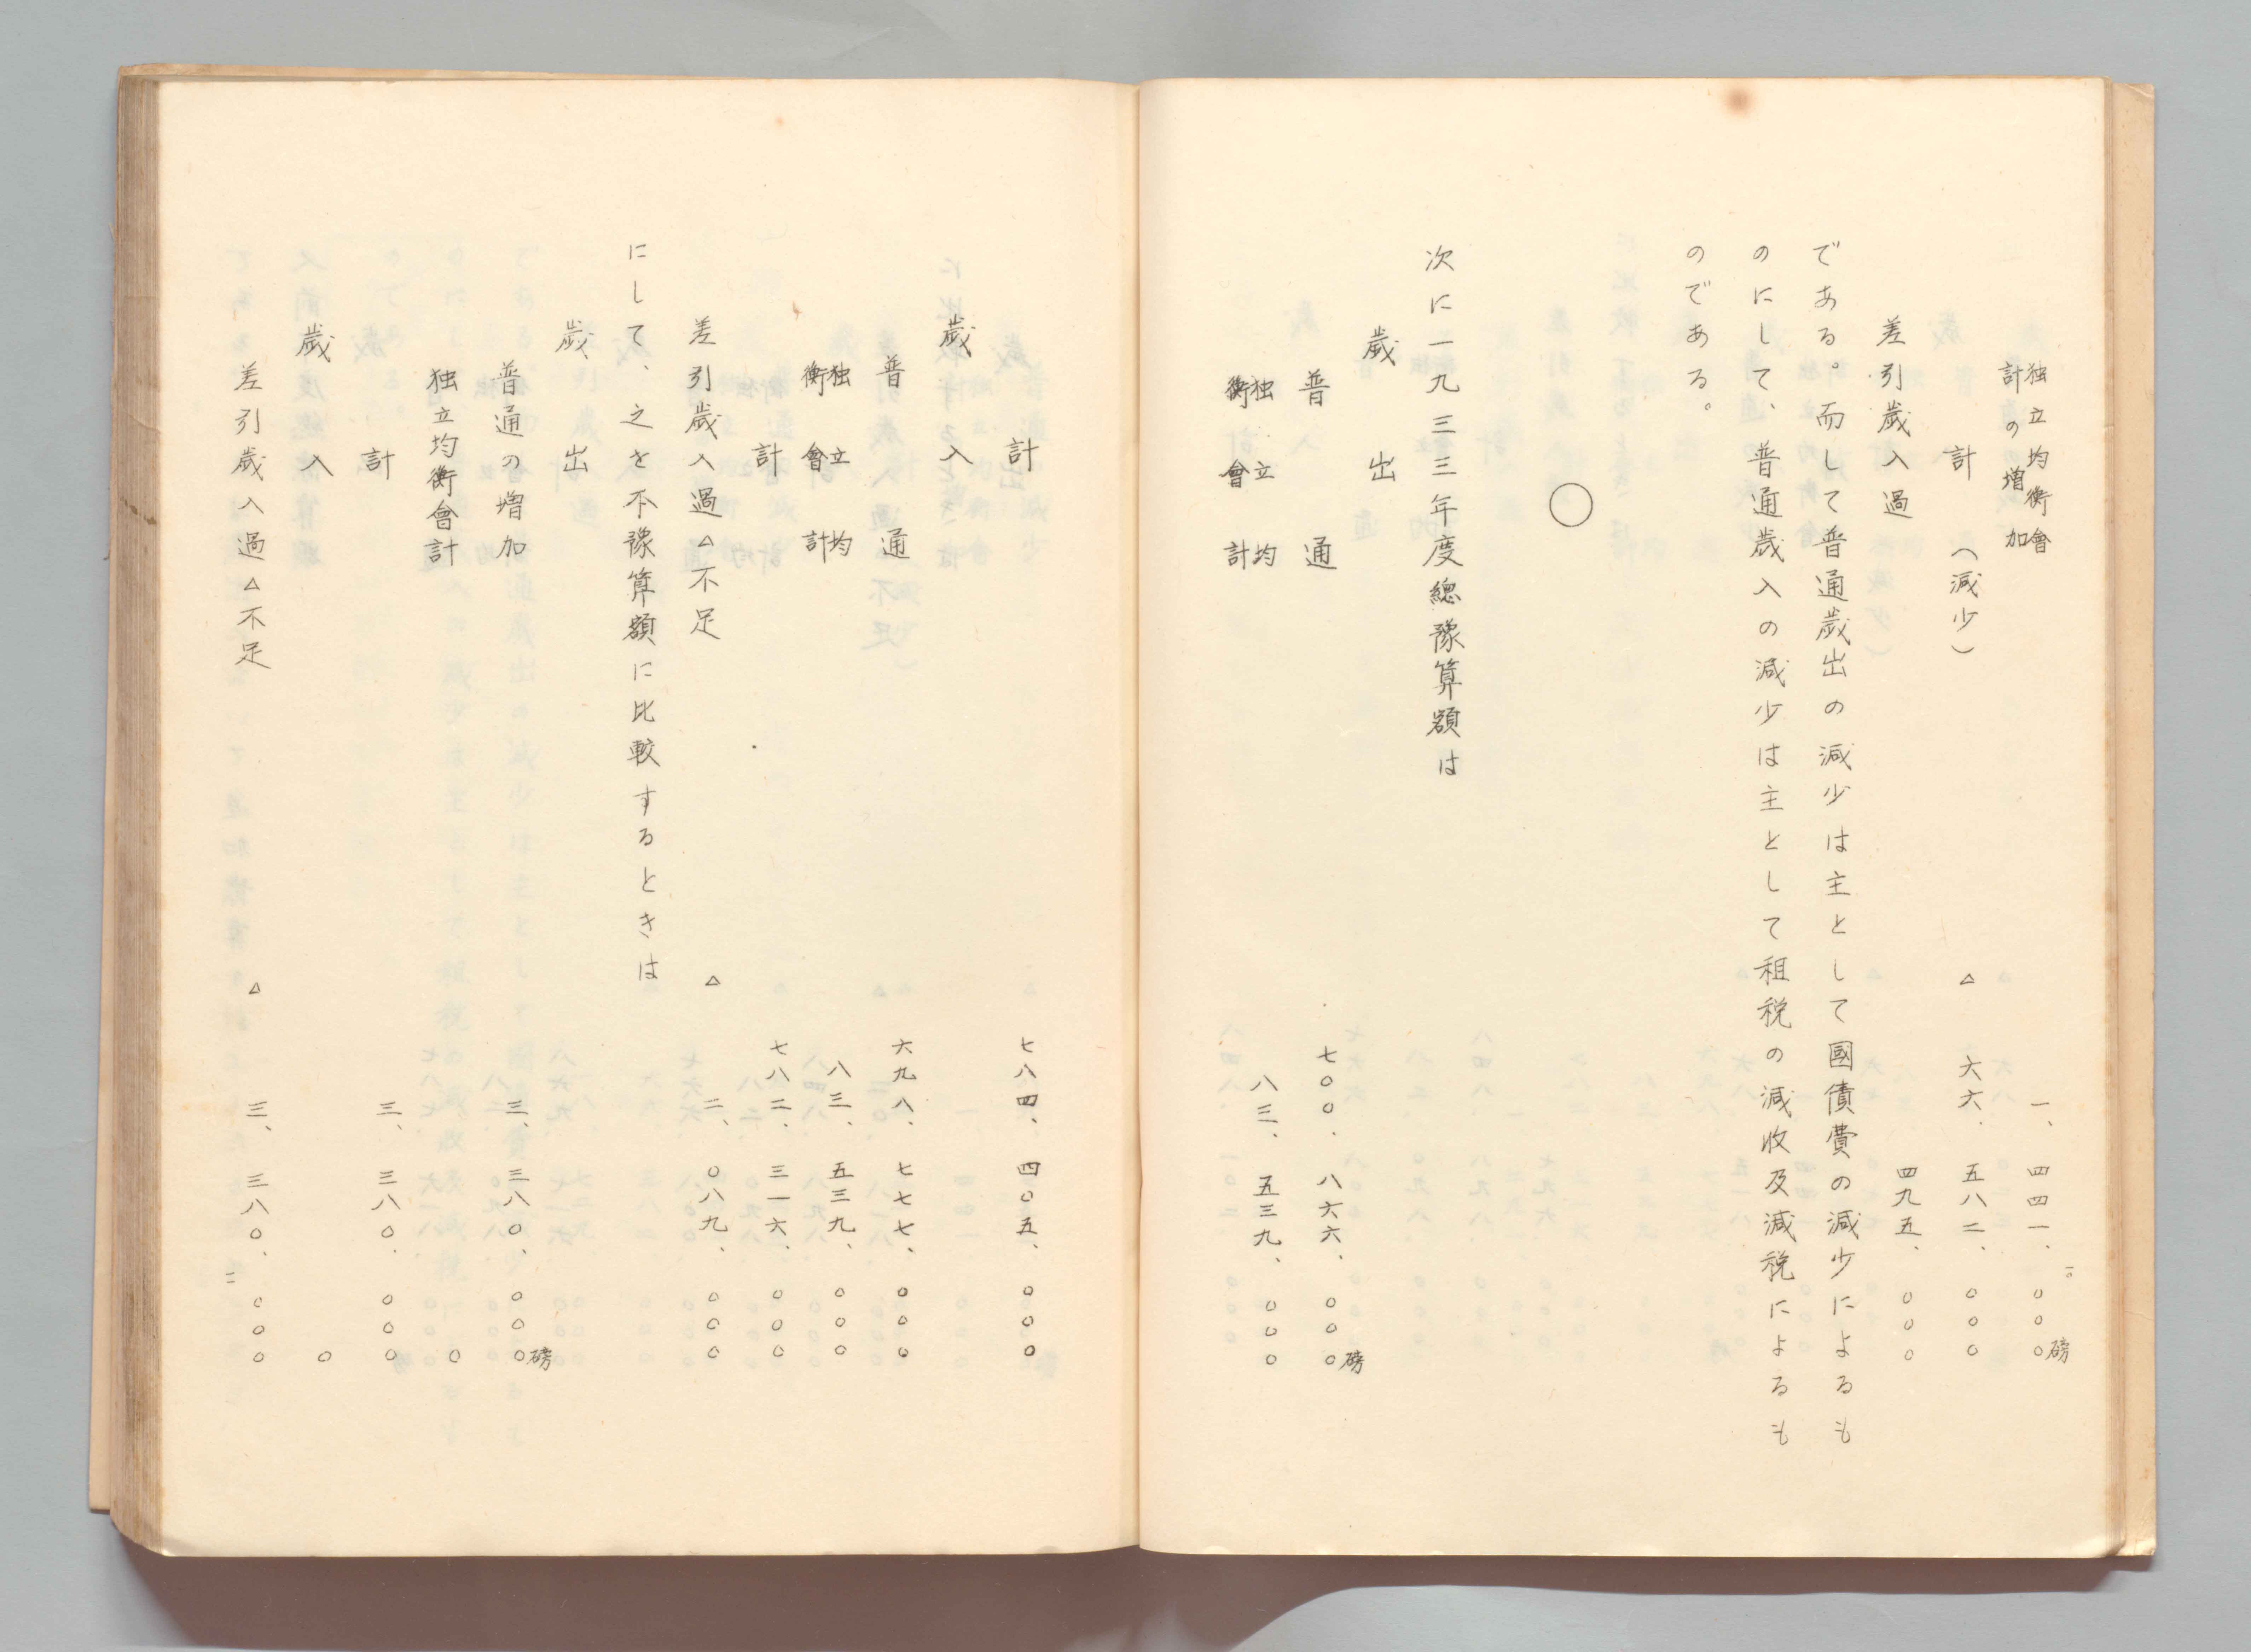 独立均衡會計の増加 一、四四一、〇〇〇磅
計（減少） △ 六六、五八二、〇〇〇
差引歳入過 四九五、〇〇〇
である。而して普通歳出の減少は主として國債費の減少によるも
のにして、普通歳入の減少は主として租税の減收及減税によるも
のである。
〇
次に一九三三年度總豫算額は
歳出
普通 七〇〇、八六六、〇〇〇磅
独立均衡會計 八三、五三九、〇〇〇
計 七八四、四〇五、〇〇〇
歳入
普通 六九八、七七七、〇〇〇
独立均衡會計 八三、五三九、〇〇〇
計 七八二、三一六、〇〇〇
差引歳入過△不足 △ 二、〇八九、〇〇〇
にして、之を不豫算額に比較するときは
歳出
普通の増加 三、三八〇、〇〇〇磅
独立均衡會計 〇
計 三、三八〇、〇〇〇
歳入 〇
差引歳入過△不足 △ 三、三八〇、〇〇〇